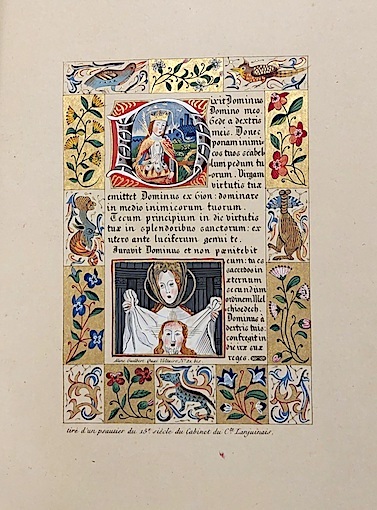 Dixit Dominus
Domino meo
Sede a dextris
meis. Donec
ponam inimi-
cos tuos scabel-
lum pedum tu
orum. Virgam
virtutis tuæ
emittet Dominus ex Sion: dominare
in medio inimicorum tuorum.
Tecum principium in die virtutis
tuæ in splendoribus sanctorum: ex
utero ante luciferum genui te.
Juravit Dominus et non pœnitebit
eum: tu es
sacerdos in
æternum
secundum
ordinem Mel
chisedech.
Dominus à
dextris tuis:
confregit in
die iræ suæ
reges.
Guilbert Quai Voltaire, bis
tiré d'un psautier du 15e siècle du Cabinet du Cte Lanjuinais.